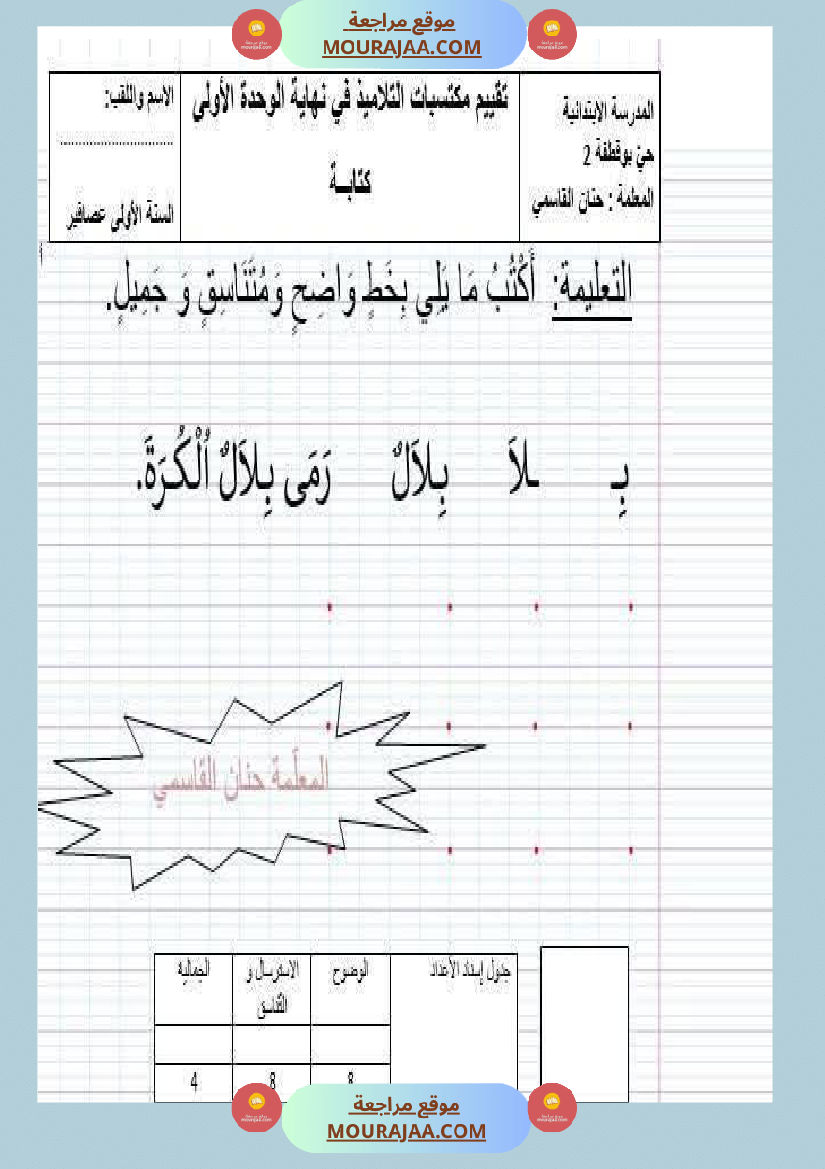 موقع مراجعة
MOURAJAA.COM
المدرسة الابتدائية
حيّ بوقطفة 2
المعلمة : حنان القاسمي
تقييم مكتسبات التلاميذ في نهاية الوحدة الأولى
كتابــة
الاسم واللقب:
..............................
السنة الأولى عصافير
التعليمة: أَكْتُبُ مَا يَلِي بِخَطٍّ وَاضِحٍ وَمُتَنَاسِقٍ وَ جَمِيلٍ.
بِـ ـلاَ بِلاَلٌ رَمَى بِلاَلٌ اُلْكُرَةَ.
المعلّمة حنان القاسمي
جدول إسناد الأعداد
الوضوح
الاسترسال و التناسق
الجمالية
8 8 4
موقع مراجعة
MOURAJAA.COM